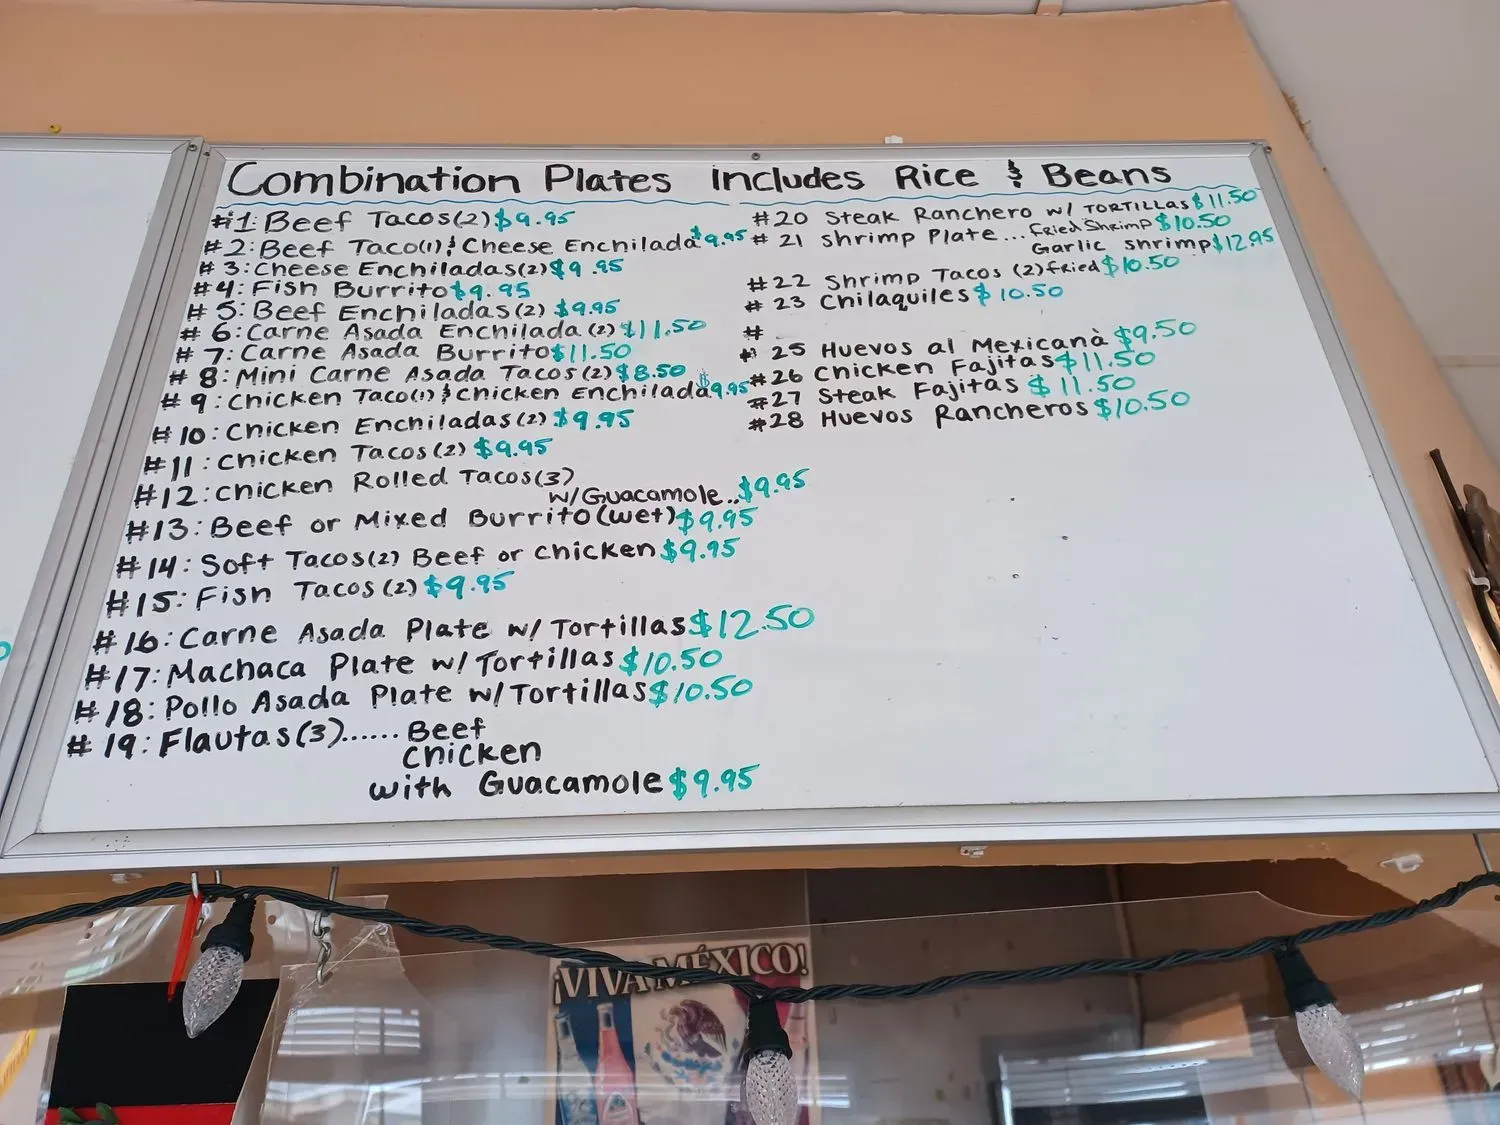 Combination Plates Includes Rice & Beans
#1: Beef Tacos(2) $9.95
#2: Beef Taco(1) & Cheese Enchilada $9.95
#3: Cheese Enchiladas(2) $9.95
#4: Fish Burrito $9.95
#5: Beef Enchiladas(2) $9.95
#6: Carne Asada Enchilada(2) $11.50
#7: Carne Asada Burrito $11.50
#8: Mini Carne Asada Tacos(2) $8.50
#9: Chicken Taco(1) & Chicken Enchilada $9.95
#10: Chicken Enchiladas(2) $9.95
#11: Chicken Tacos(2) $9.95
#12: Chicken Rolled Tacos(3)
w/Guacamole.. $9.95
#13: Beef or Mixed Burrito(wet) $9.95
#14: Soft Tacos(2) Beef or Chicken $9.95
#15: Fish Tacos(2) $9.95
#16: Carne Asada Plate w/ Tortillas $12.50
#17: Machaca Plate w/ Tortillas $10.50
#18: Pollo Asada Plate w/Tortillas $10.50
#19: Flautas(3)...... Beef
Chicken
with Guacamole $9.95
#20 Steak Ranchero w/ TORTILLAS $11.50
#21 Shrimp Plate... Fried Shrimp $10.50
Garlic Shrimp $12.95
#22 Shrimp Tacos (2) fried $10.50
#23 Chilaquiles $10.50
#
#25 Huevos al Mexicanà $9.50
#26 Chicken Fajitas $11.50
#27 Steak Fajitas $11.50
#28 Huevos Rancheros $10.50
¡VIVA MÉXICO!